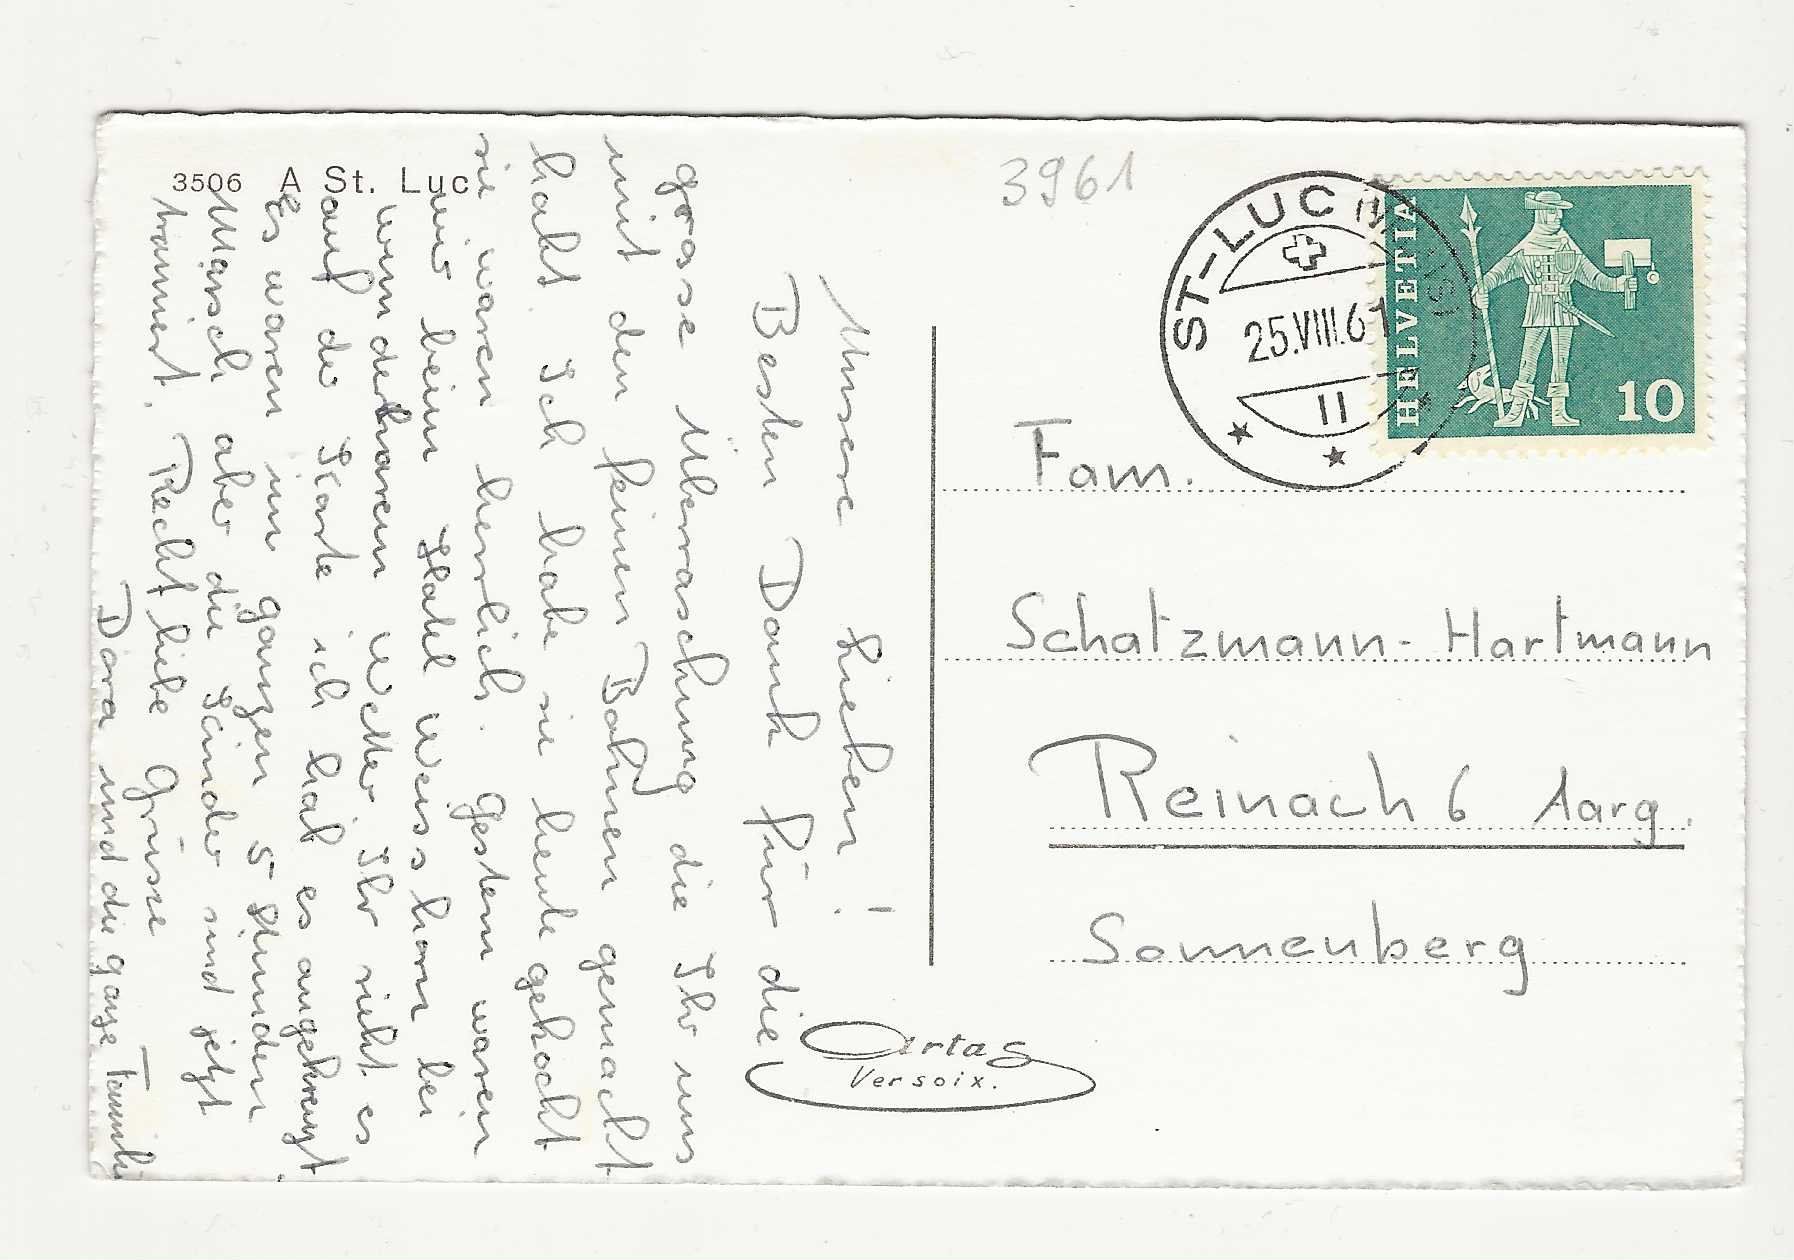 3506 A St. Luc
Unsere Lieben!
Besten Dank für die
grosse Überraschung die Ihr uns
mit den feinen Bohnen gemacht
habt. Ich habe sie heute gekocht
sie waren herrlich. Gestern waren
wir beim Hotel Weisshorn bei
wunderbarem Wetter. Ihr sieht es
auf der Karte ich hab es angekreuzt
Es waren im ganzen 5 Stunden
Marsch aber die Kinder sind jetzt
trainiert. Recht liebe Grüsse
Dora und die ganze Familie
3961
ST-LUC
25.VIII.61
11
HELVETIA
10
Fam.
Schatzmann-Hartmann
Reinach 6 Aarg.
Sonnenberg
Artas
Versoix.